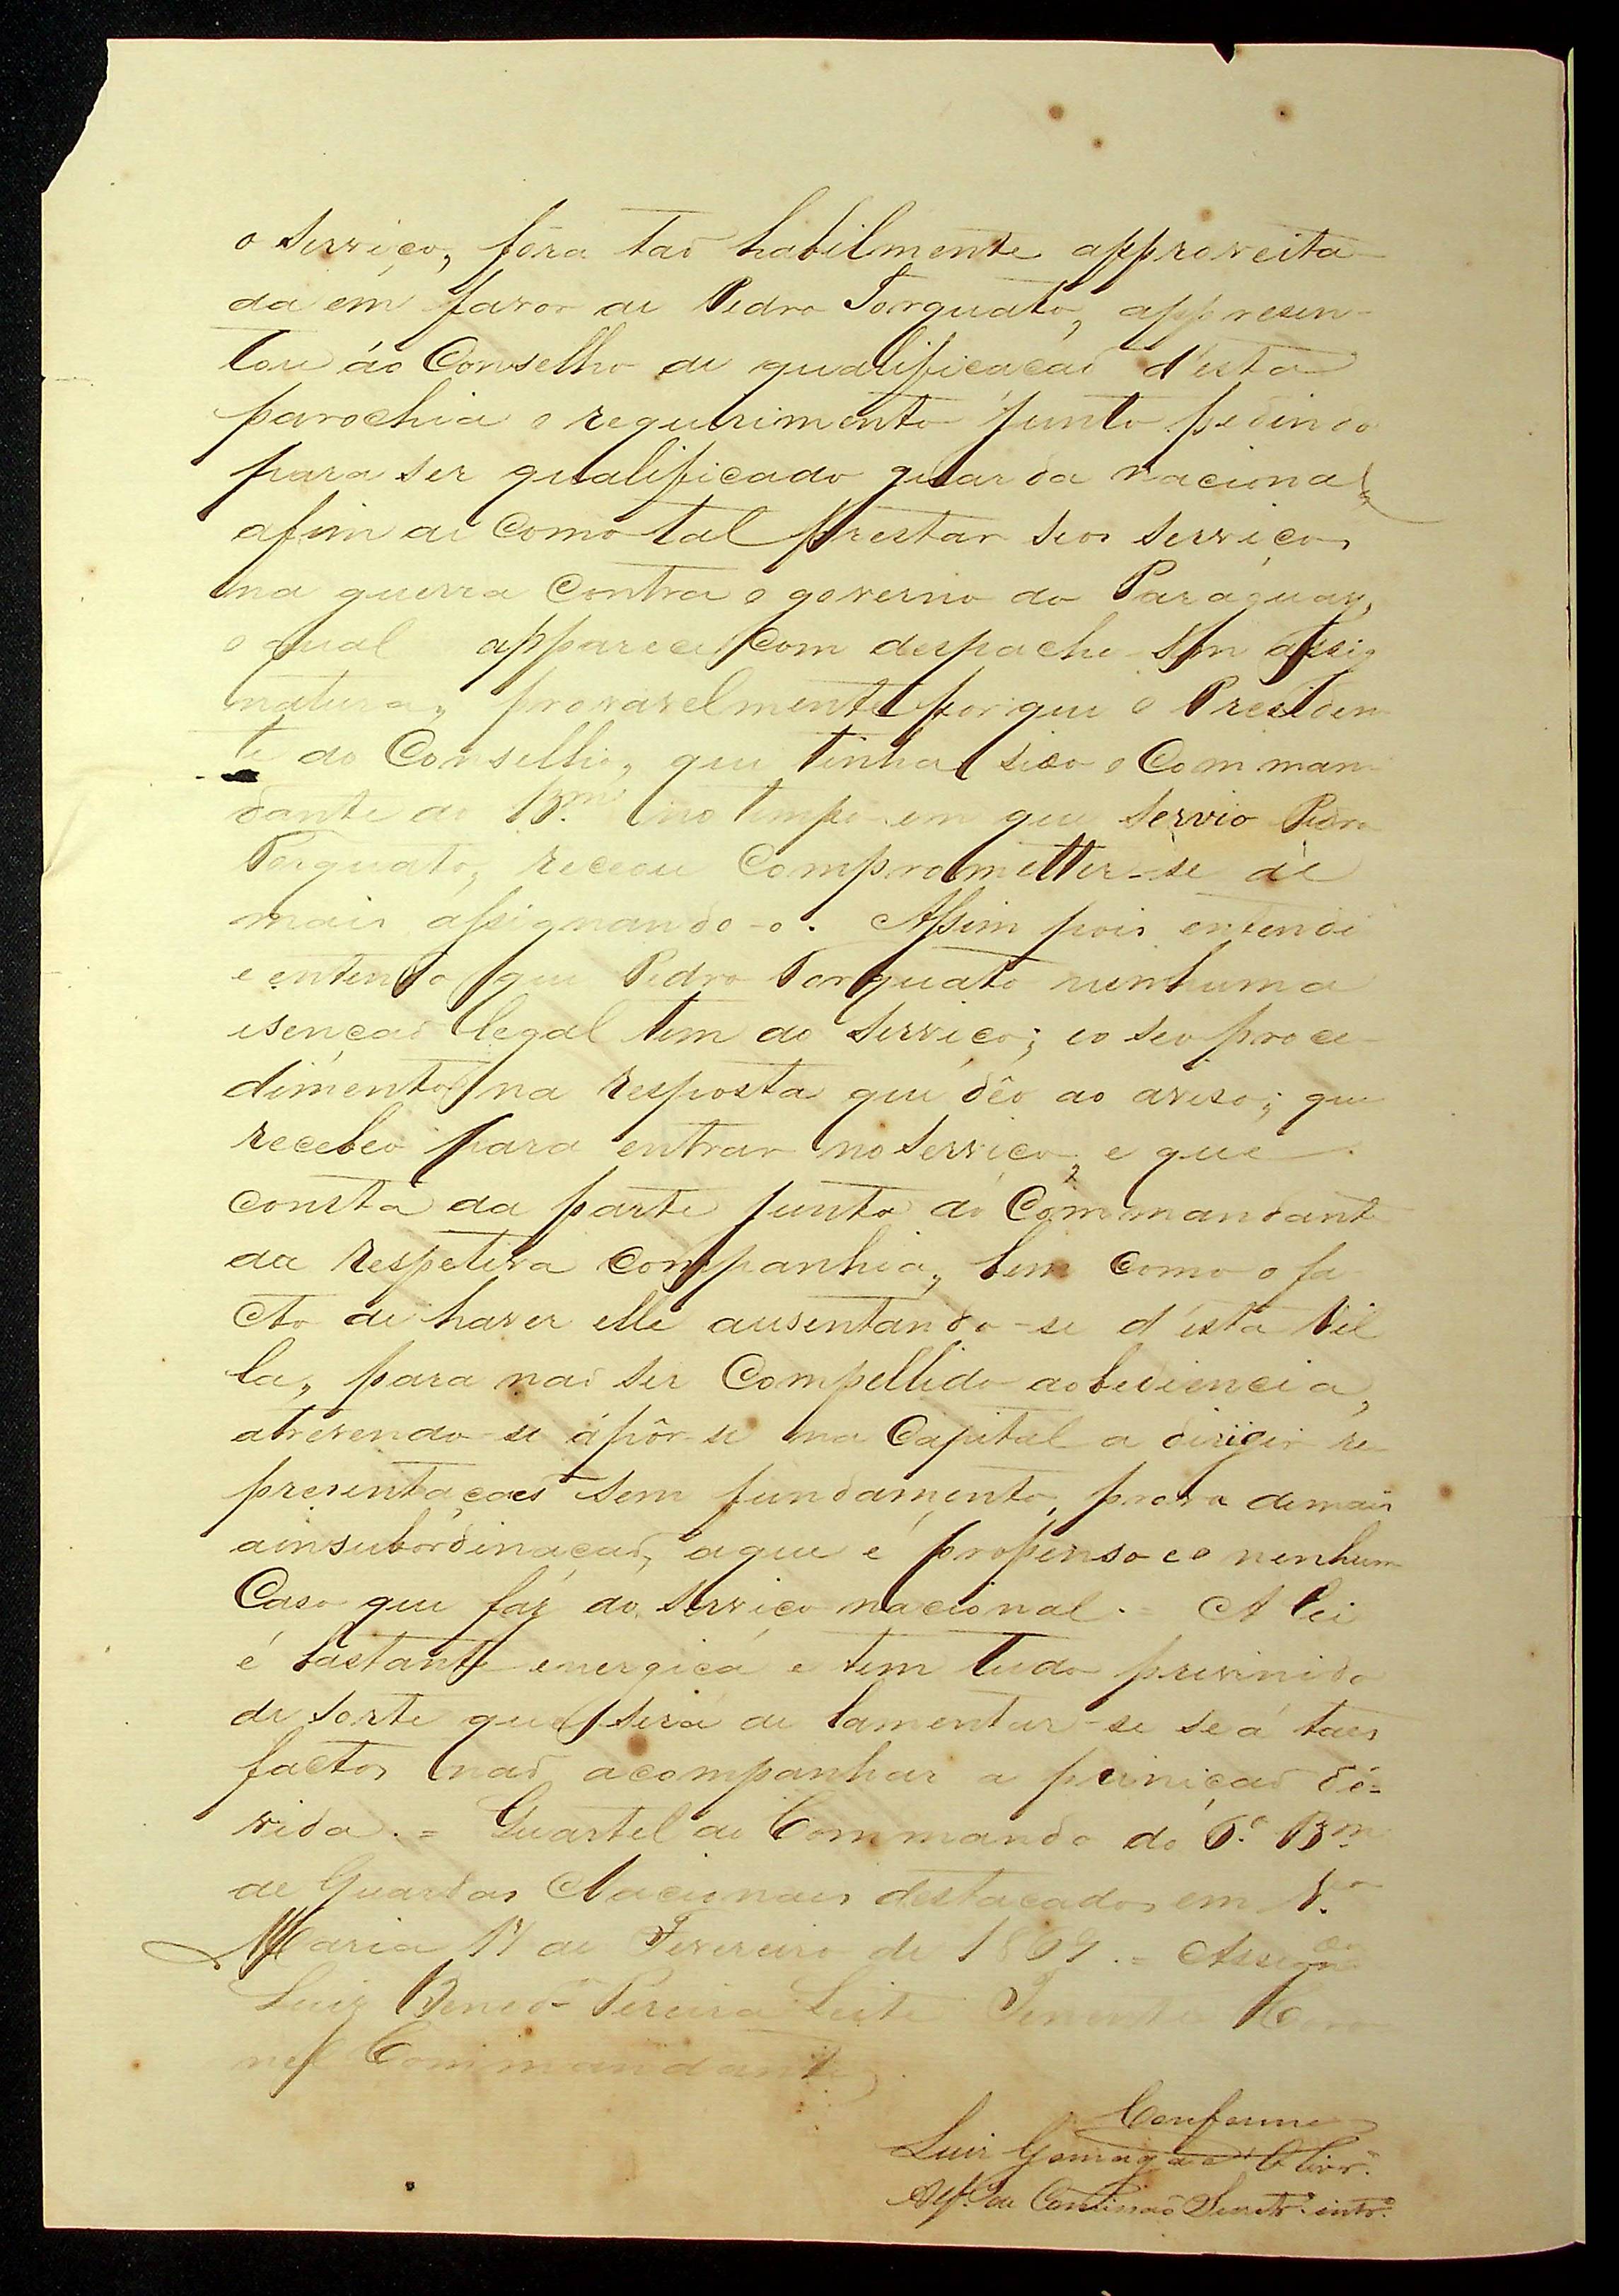 o serviço, fôra taõ habilmente approveita-
da em favor de Pedro Torquato, appresen-
tou áo Conselho de qualificacaõ d'esta
parochia o requerimento junto pedindo
para ser qualificado guarda nacional,
afim de como tal prestar seos serviços
na guerra contra o governo do Paraguay,
o qual apparece com despacho sem assig
natura, provavelmente porque o Presiden
te do Conselho, que tinha sido o Comman
dante do B.m no tempo em que servio Pedro
Torquato, receou comprometter-se de
mais assignando-o. Assim pois entendi
e entendo que Pedro Torquato nenhuma
isençaõ legal tem do serviço; eo seo proce-
dimento na resposta que dêo ao aviso; que
recebeo para entrar no serviço, e que
consta da parte junta do Commandante
da respetiva companhia, bem como o fa
cto de haver elle ausentando-se d'esta Vil
la, para naõ ser compellido aobediencia,
atrevendo-se ápôr-se na Capital a dirigir re
presentaçoes sem fundamento, prova demais
ainsubordinaçaõ, aque é propenso eo nenhum
Caso que faz do serviço nacional. = A lei
é bastante energica e tem tudo previnido
de sorte que será de lamentar-se se á taes
factos naõ acompanhar a puniçaõ dé-
vida. = Quartel do Commando do 6.º B.m
de Guardas Nacionais destacados em S.ta
Maria 17 de Fevereiro de 1869. = Assign.do
Luiz Bened.o Pereira Leite Tenente Coro
nel Commandante
Conforme
Luiz Gonzaga d'Olivr.a
Alf. de Secretr.o intr.o